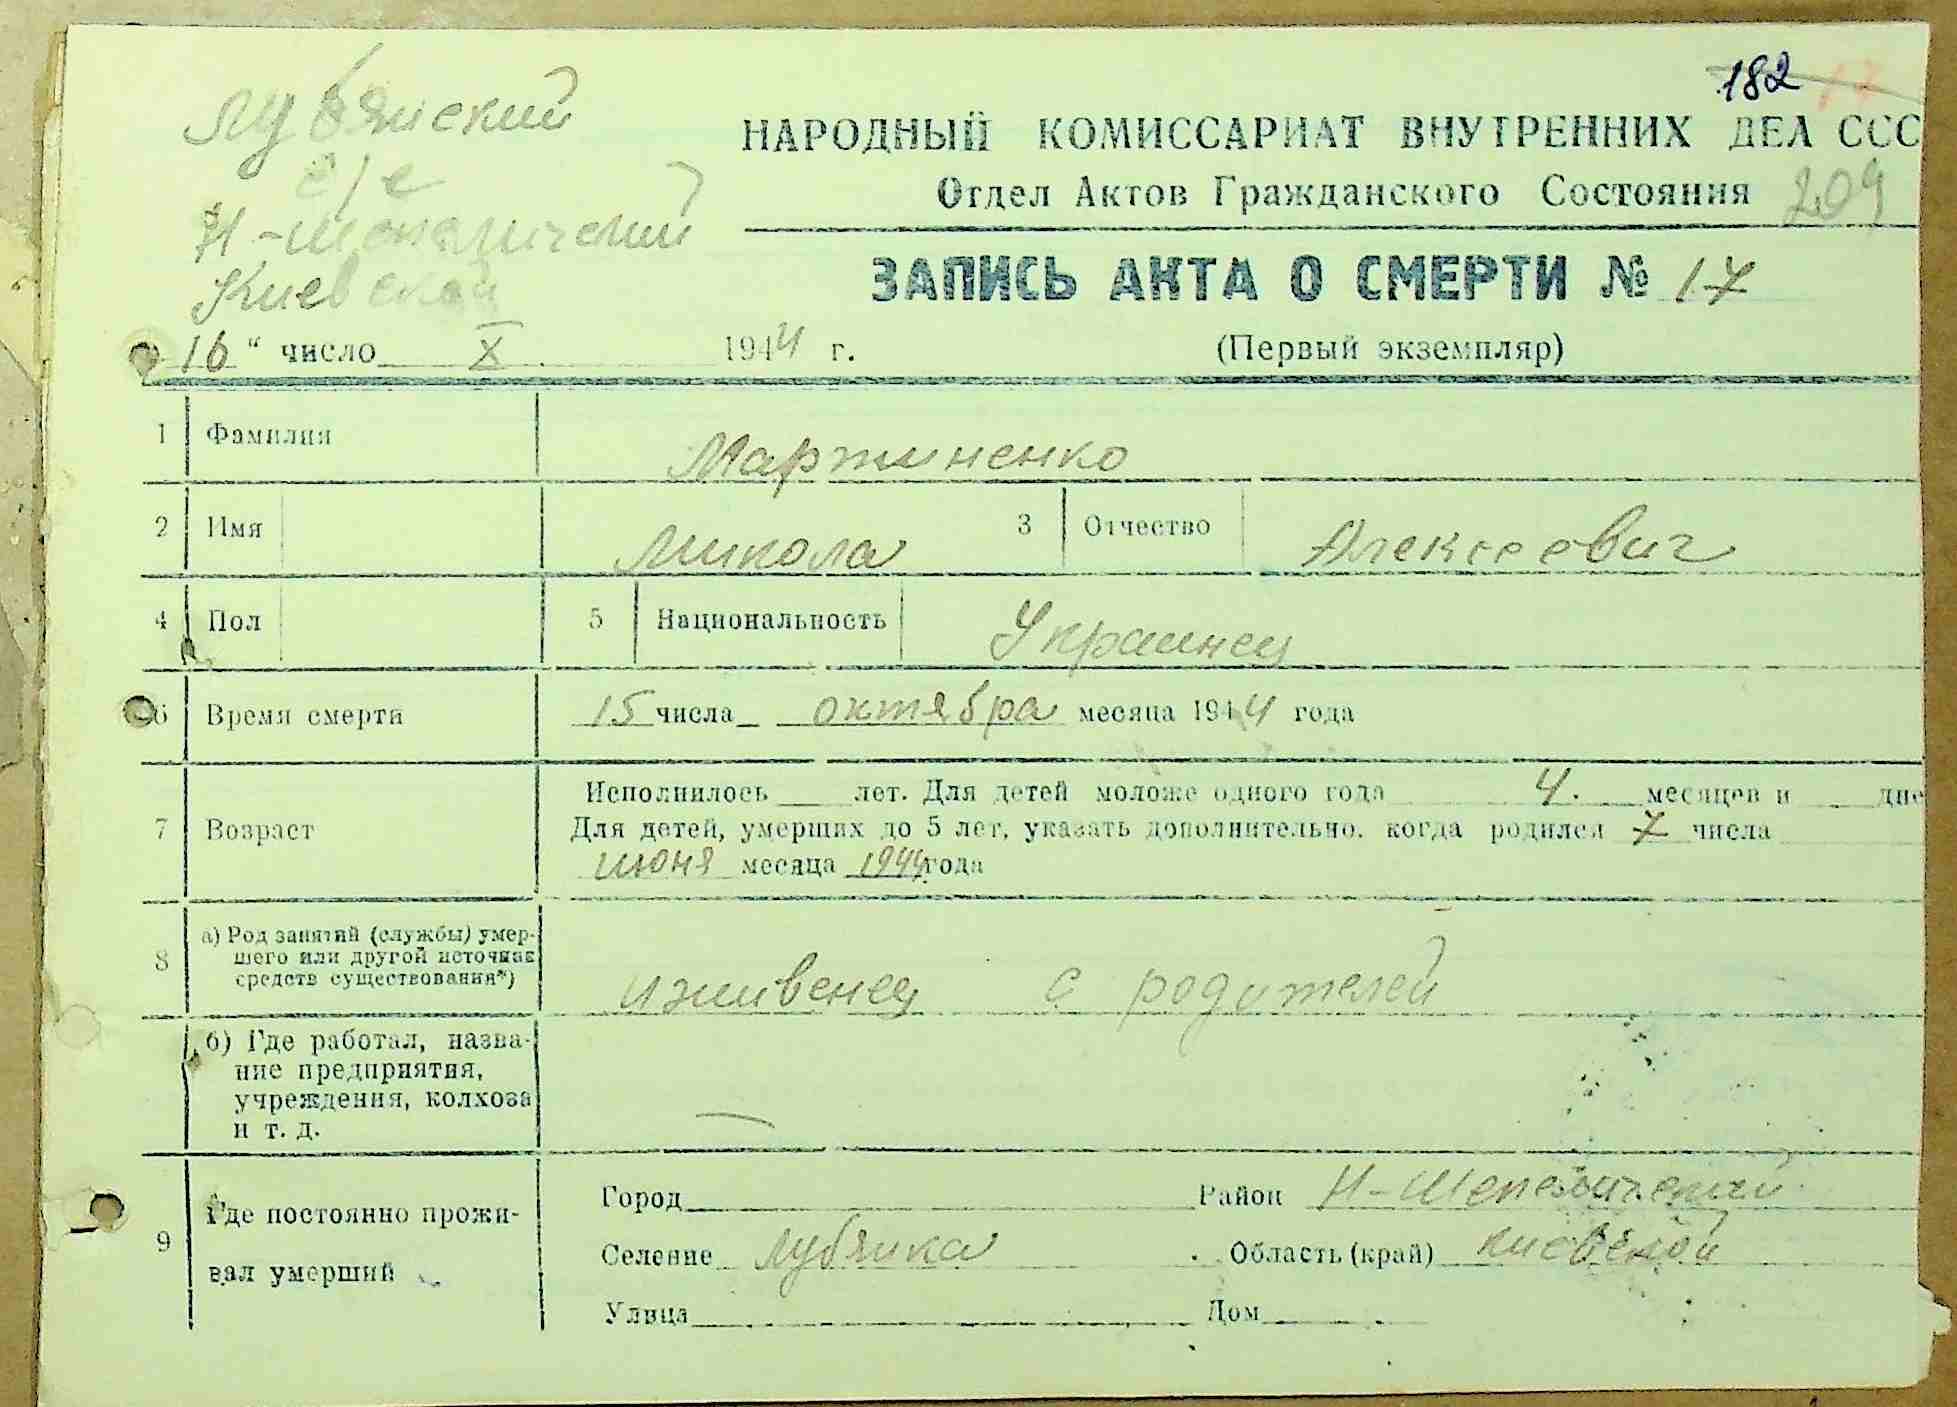 182 17
Лубянский
с/с
НАРОДНЫЙ КОМИССАРИАТ ВНУТРЕННИХ ДЕЛ ССС
Отдел Актов Гражданского Состояния 209
Н-Шепеличский
Киевской
ЗАПИСЬ АКТА О СМЕРТИ № 17
16 " число X 1944 г.
(Первый экземпляр)
1 Фамилия Мартиненко
2 Имя Микола 3 Отчество Алексеевич
4 Пол 5 Национальность Украинец
6 Время смерти 15 числа октября месяца 1944 года
7 Возраст Исполнилось лет. Для детей моложе одного года 4. месяцев и дне
Для детей, умерших до 5 лет, указать дополнительно, когда родился 7 числа
июня месяца 1944 года
8 а) Род занятий (службы) умер-
шего или другой источник
средств существования*)
иживенец с родителей
б) Где работал, назва-
ние предприятия,
учреждения, колхоза
и т. д. —
9 Где постоянно прожи-
вал умерший
Город Район Н-Шепеличский
Селение Лубянка Область (край) Киевской
Улица Дом